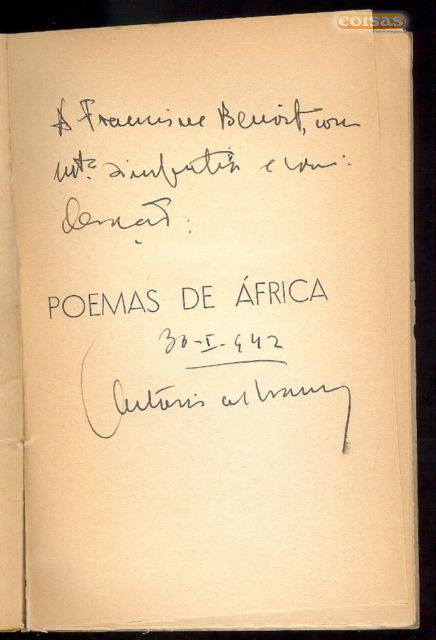 coisas
A Francine Benoit, com
mta. simpatia e consi-
deração:
POEMAS DE ÁFRICA
30-I-942
António de